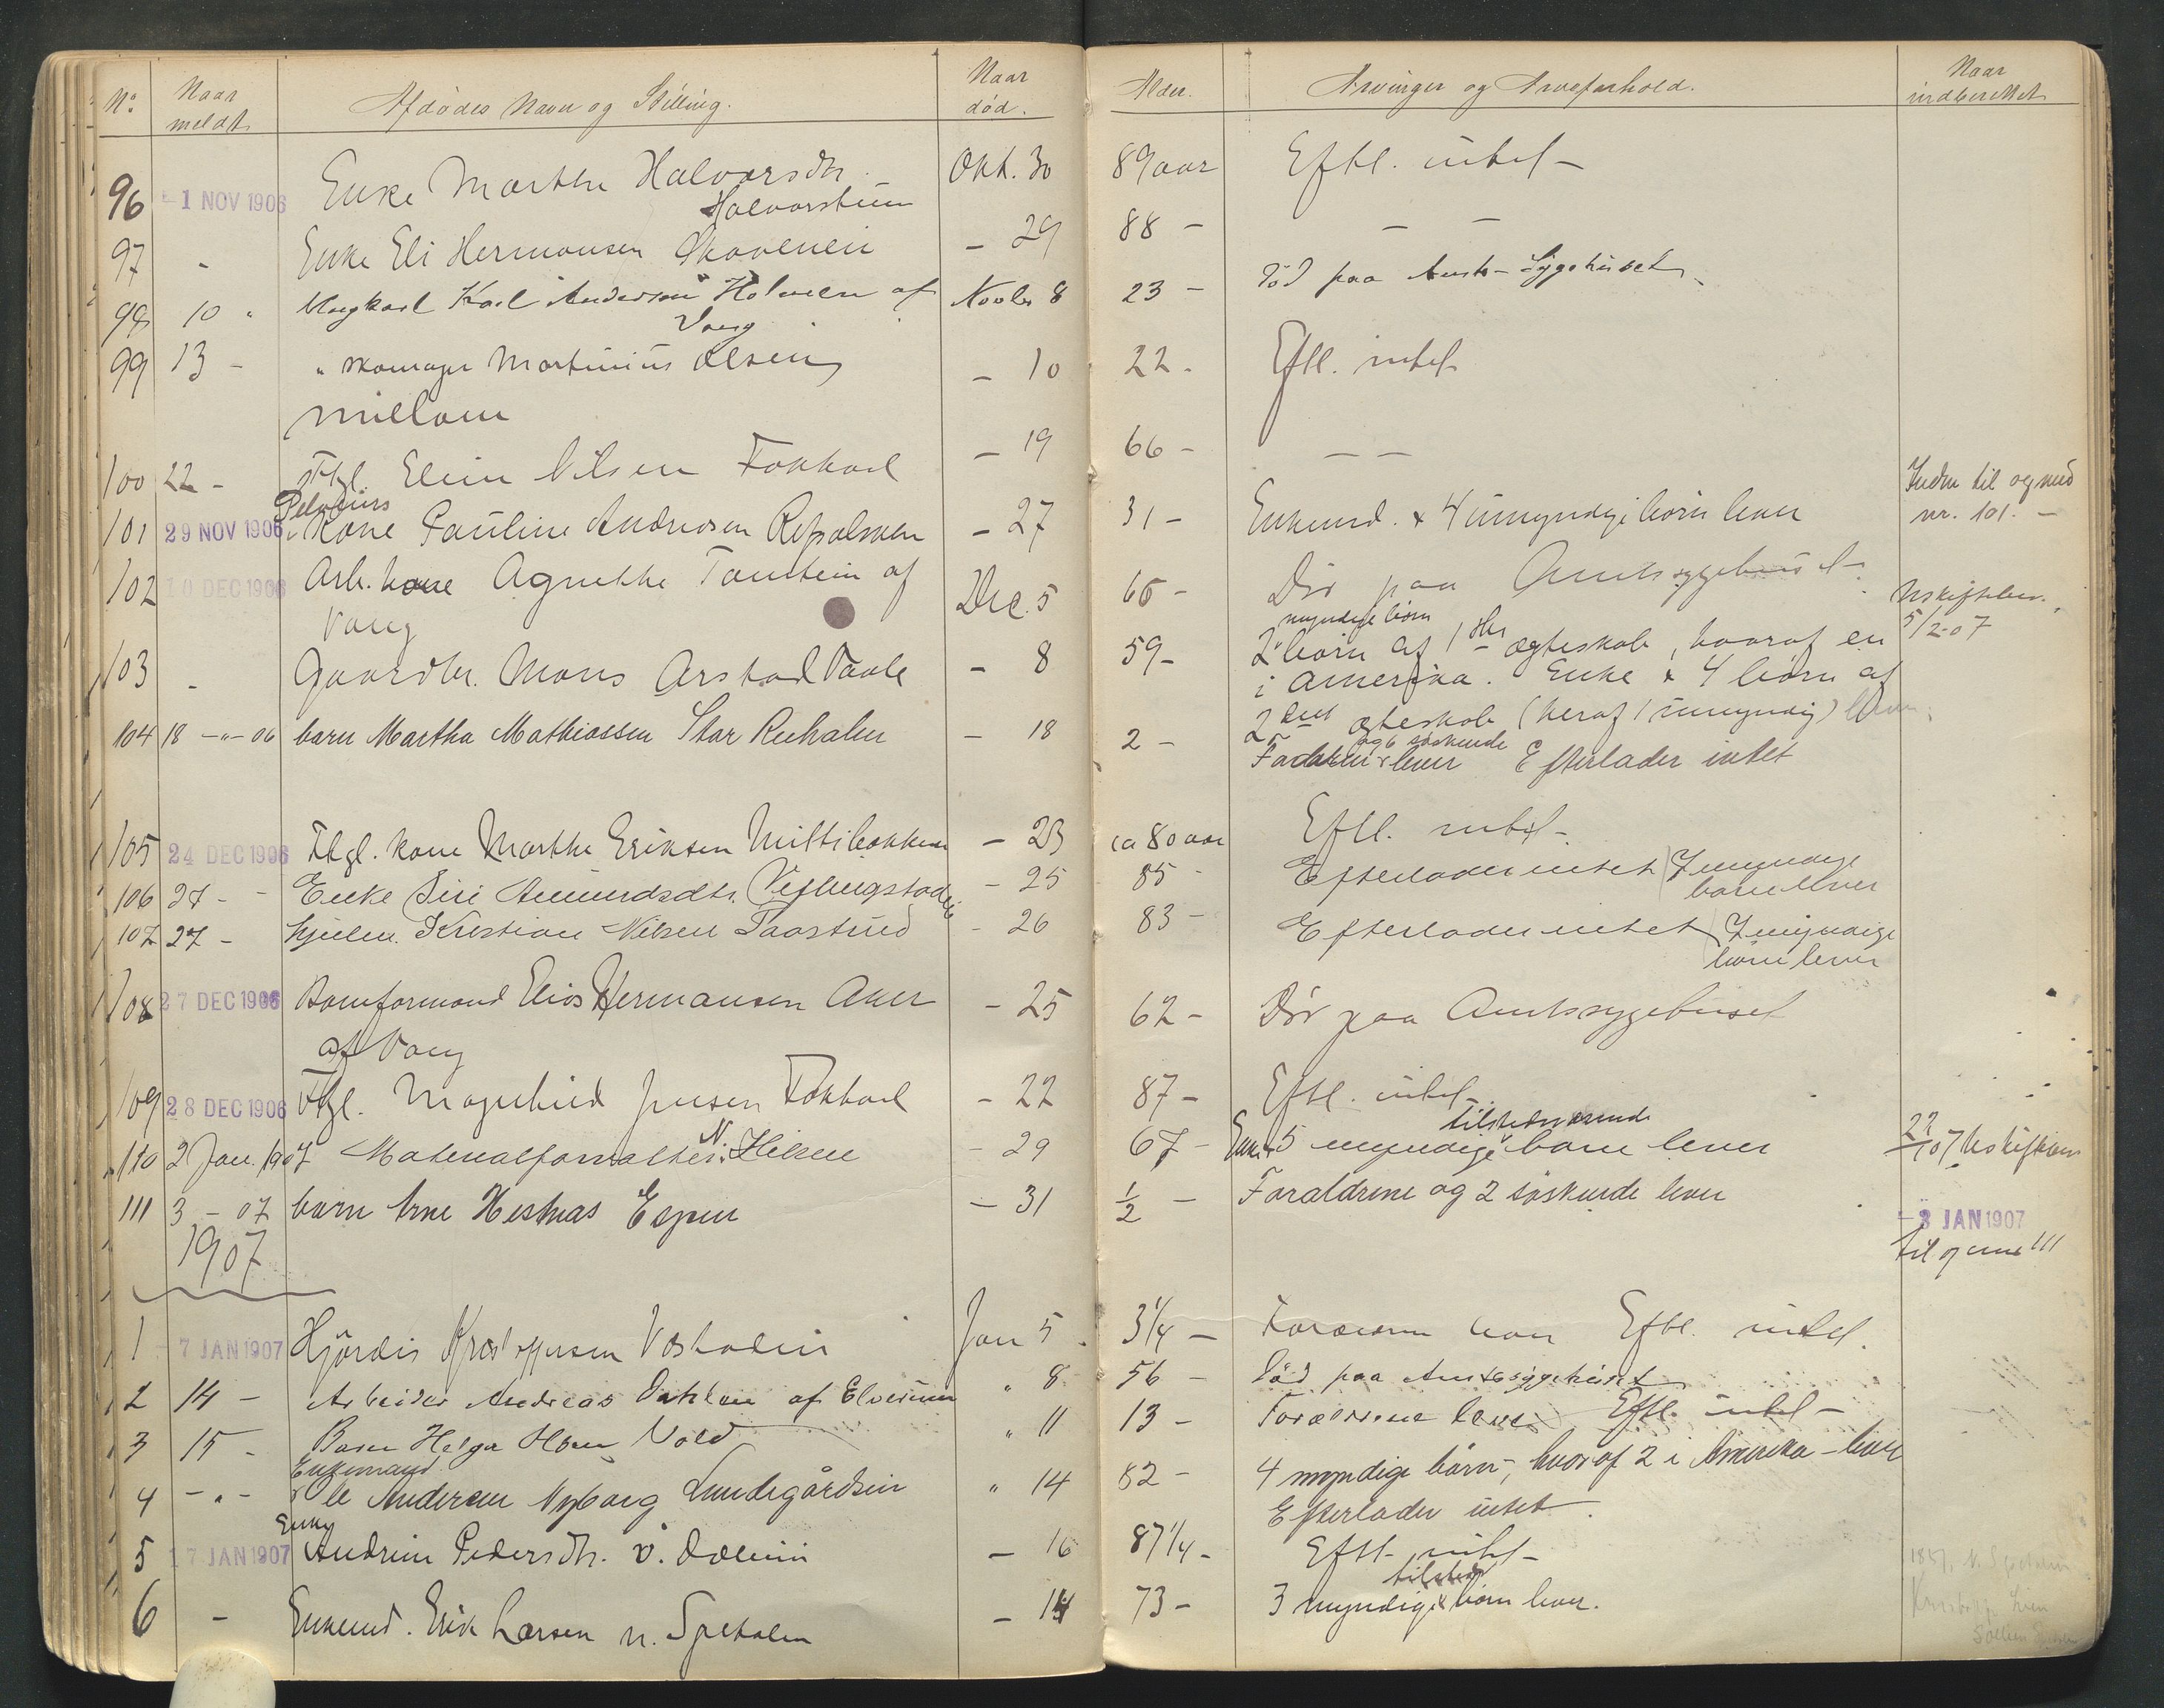 No Naar meldt Afdødes Navn og Stilling. Naar død. Alder. Arvinger og Arveforhold. Naar indberettet
96 -1 NOV 1906 Enke Marthe Halvorsdtr. Okt. 30 89 aar Eftl. intet -
Halvorstuen
97 - Enke Eli Hermansen Skovenen - 29 88 - - -
98 10 " Ungkarl Karl Andersen Holmen af Novbr 8 23 - Død paa Amts-Sygehuset
Vang
99 13 - " skomager Martinius Olsen - 10 22 - Eftl. intet
Millom
100 22 - Ftgl. Elin Nilsen Fokhol - 19 66 - - -
Inden til og med
nr. 101. -
101 29 NOV 1906 Kone Pauline Andersen - 27 31 - Enkemd. & 4 umyndige børn lever
102 10 DEC 1906 Arb. kone Agnethe af Dec. 5 65 - Dør paa Amtssygehuset
Vang
myndige børn
103 - Gaardbr. Mons Arstad - 8 59 - 2 børn af 1ste ægteskab, hvoraf en
5/2-07
i Amerika. Enke & 4 børn af
2det ægteskab (heraf 1 umyndig) lever
104 18 -"- 06 barn Martha Mathiassen - 18 2 -
og 6 søskende
lever Efterlader intet
105 24 DEC 1906 Ftgl. kone Marthe Eriksen - 23 ca 80 aar Eftl. intet -
106 27 - Enke Siri Amundsdtr. - 25 85 - Efterlader intet myndige
børn lever
107 27 - Kristian Nilsen Taastrud - 26 83 - Efterlader intet myndige
børn lever
108 27 DEC 1906 Elias Hermansen Aker - 25 62 - Dør paa Amtssygehuset
af Vang
109 28 DEC 1906 Ftgl. Magnhild Jensen Fokhol - 22 87 - Eftl. intet -
tilstedeværende
110 2 Jan. 1907 Materialforvalter N. - 29 67 - Enke & 5 myndige børn lever
111 3 - 07 barn Arne Hestnæs Espen - 31 1/2 - Forældrene og 2 søskende lever
-3 JAN 1907
til og med 111
1907
1 7 JAN 1907 Hjørdis Kristoffersen Jan 5 3 1/4 - Forældrene lever Eftl. intet.
2 14 - Arbeider Andreas Dahlen af Elverum " 8 56 - Død paa Amtssygehuset
3 15 - Barn Helga Olsen Vold " 11 13 - Forældrene lever Eftl. intet -
Enkemand
4 -"- Ole Andersen Nyborg Lundegårdsein " 14 82 - 4 myndige børn, hvoraf 2 i Amerika - lever
Efterlader intet.
Enke
5 17 JAN 1907 Andrine Pedersdtr. - 16 87 1/4 - Eftl. intet -
6 - Enkemd. Erik Larsen n. Spetalen - 14 73 - 3 myndige børn lever.